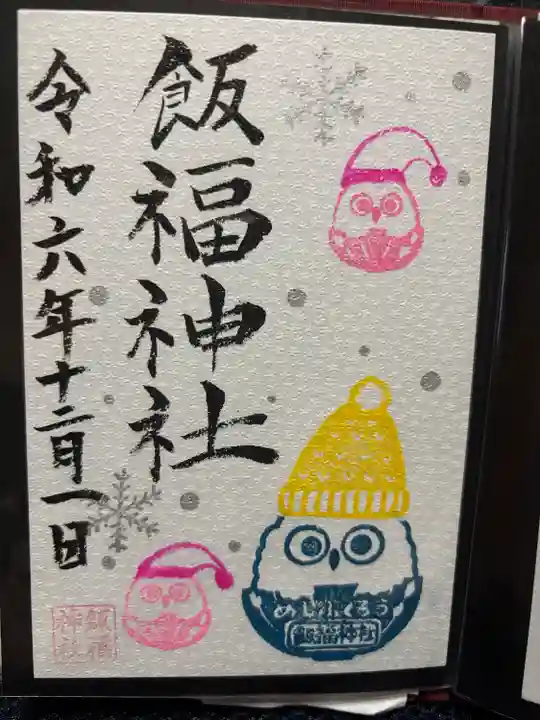 飯福神社
令和六年十二月一日
めしふくろう
飯福神社
飯福
神社